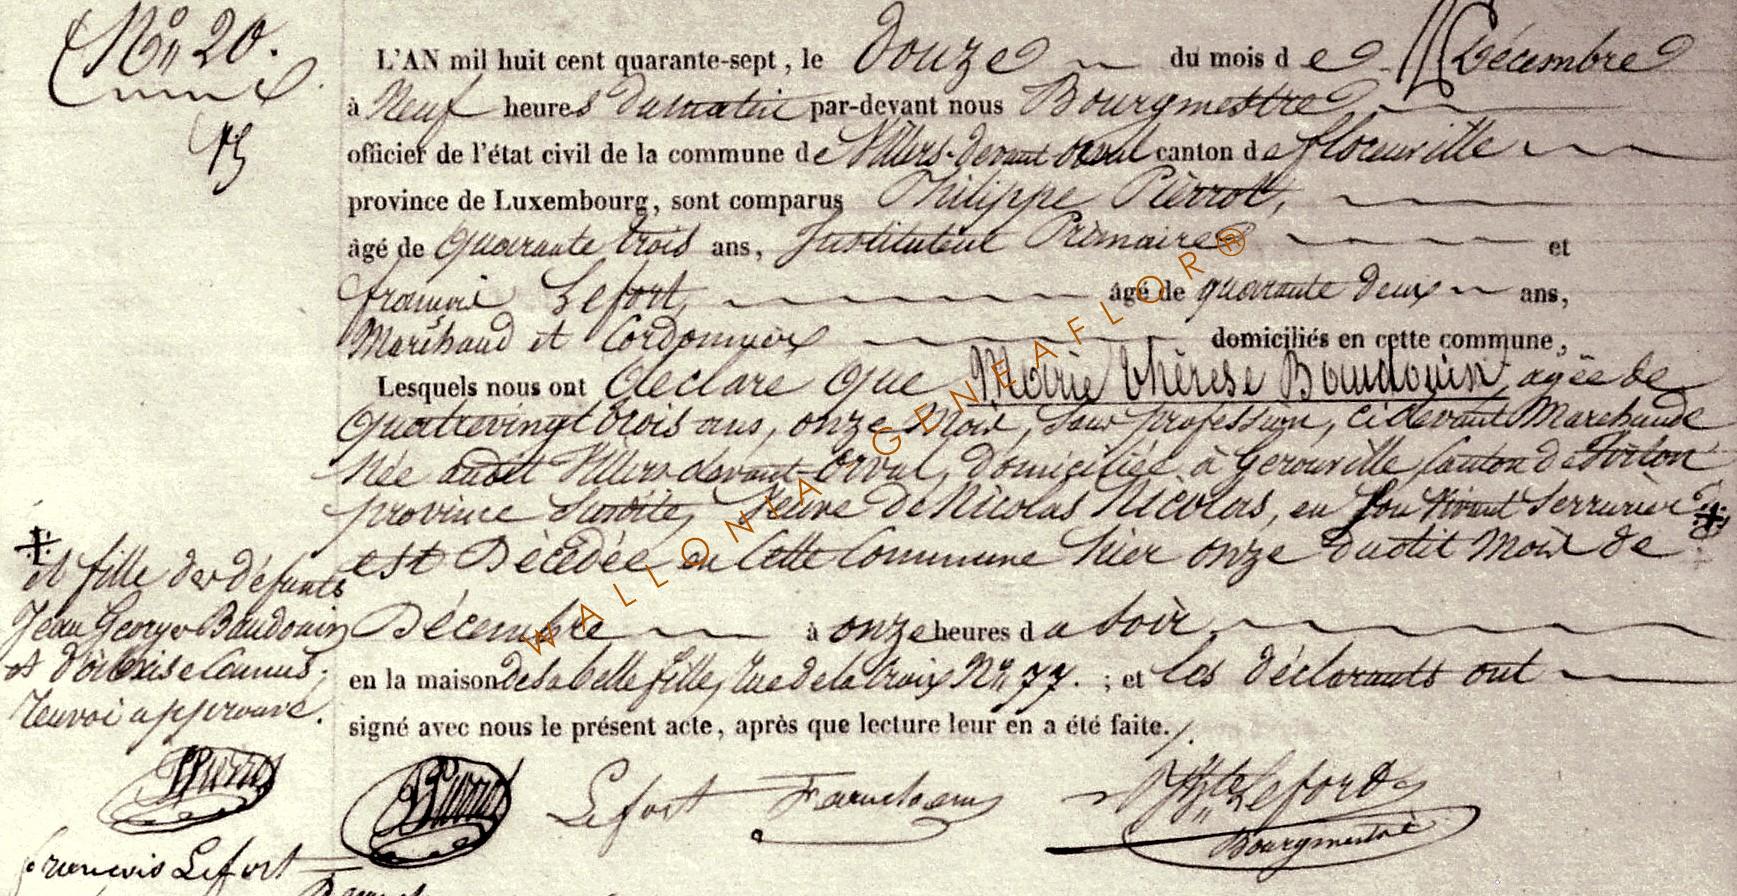 Nº 20.
L'AN mil huit cent quarante-sept, le Douze du mois de Décembre
à Neuf heures du matin par-devant nous Bourgmestre
officier de l'état civil de la commune de Villers-devant orval canton de florenville
province de Luxembourg, sont comparus Philippe Pierrot,
âgé de quarante trois ans, Instituteur Primaire et
françois Lefort, âgé de quarante deux ans,
Marchand et Cordonnier domiciliés en cette commune,
Lesquels nous ont déclaré que Marie thérèse Baudouin agée de
quatrevingt trois ans, onze Mois, sans profession, ci devant Marchande
Née audit Villers devant Orval, domiciliée à Gerouville, Canton de Virton
province susdite, Veuve de Nicolas Nicolas, en son vivant Serrurier ‡
est Décédée en cette Commune hier onze dudit Mois de
Décembre à onze heures du soir,
en la maison de sa belle fille, rue de la Croix Nº 77. ; et les déclarants ont
signé avec nous le présent acte, après que lecture leur en a été faite./.
‡
et fille des défunts
Jean George Baudouin
et d' Camus.
Renvoi approuvé.
Lefort
Hyte Lefort
Bourgmestre
François Lefort
WALLONIA-GENEAFLOR®